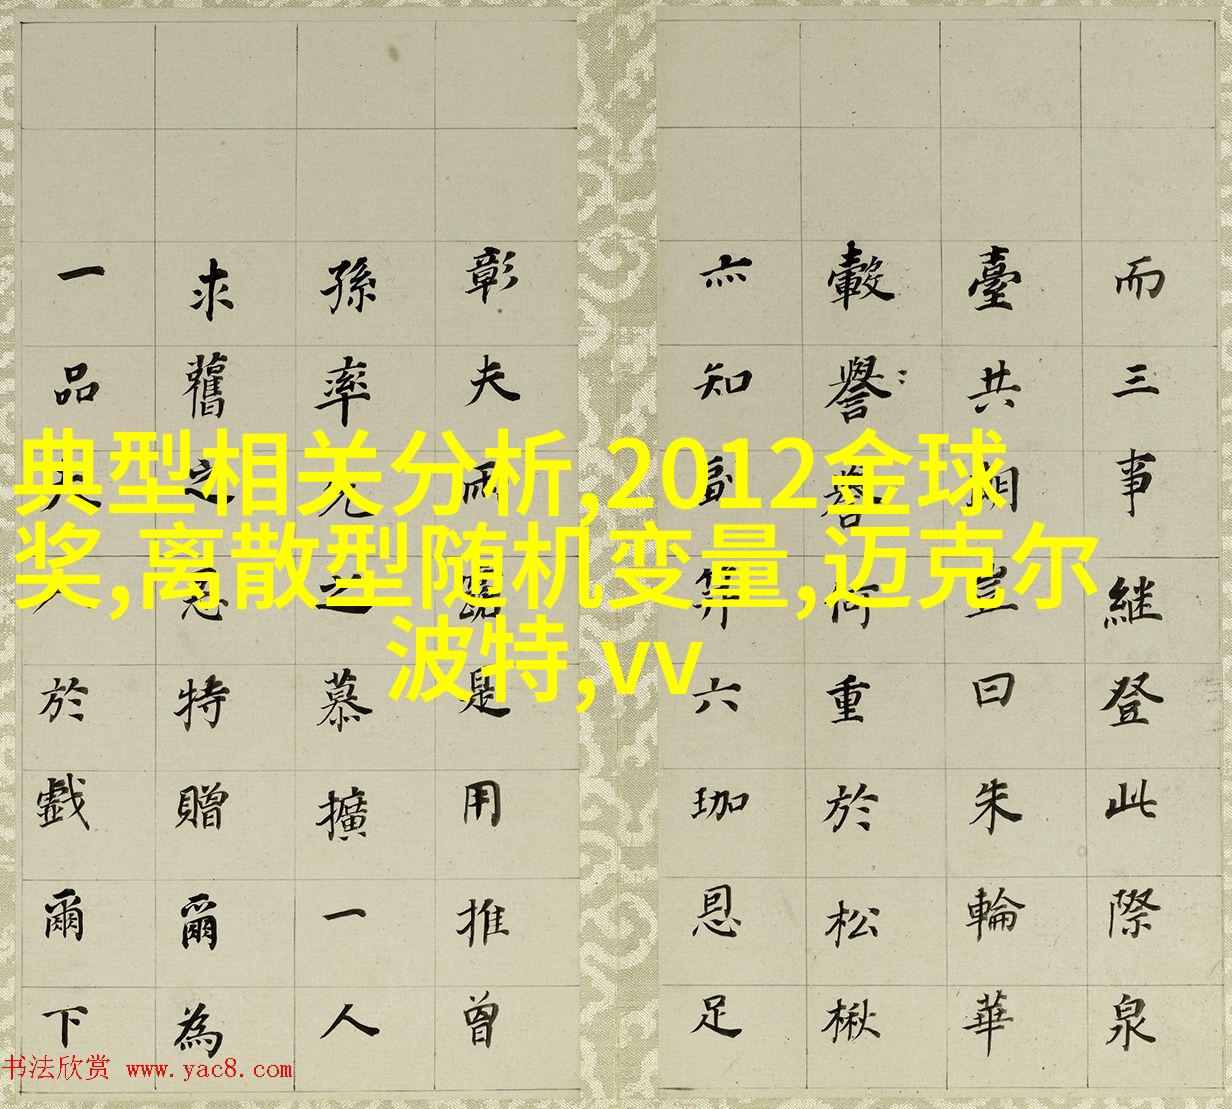 而三事継登此際泉
臺共豈曰朱輪華
轂譽譽何重於松楸
亦知副笄六珈恩足
彰夫雨露是用推曾
孫率之慕擴一人
求舊之恩特贈爾為
一品夫人於戲爾下
典型相关分析,2012金球
奖,离散型随机变量,迈克尔
波特,vv
书法欣赏 www.yac8.com